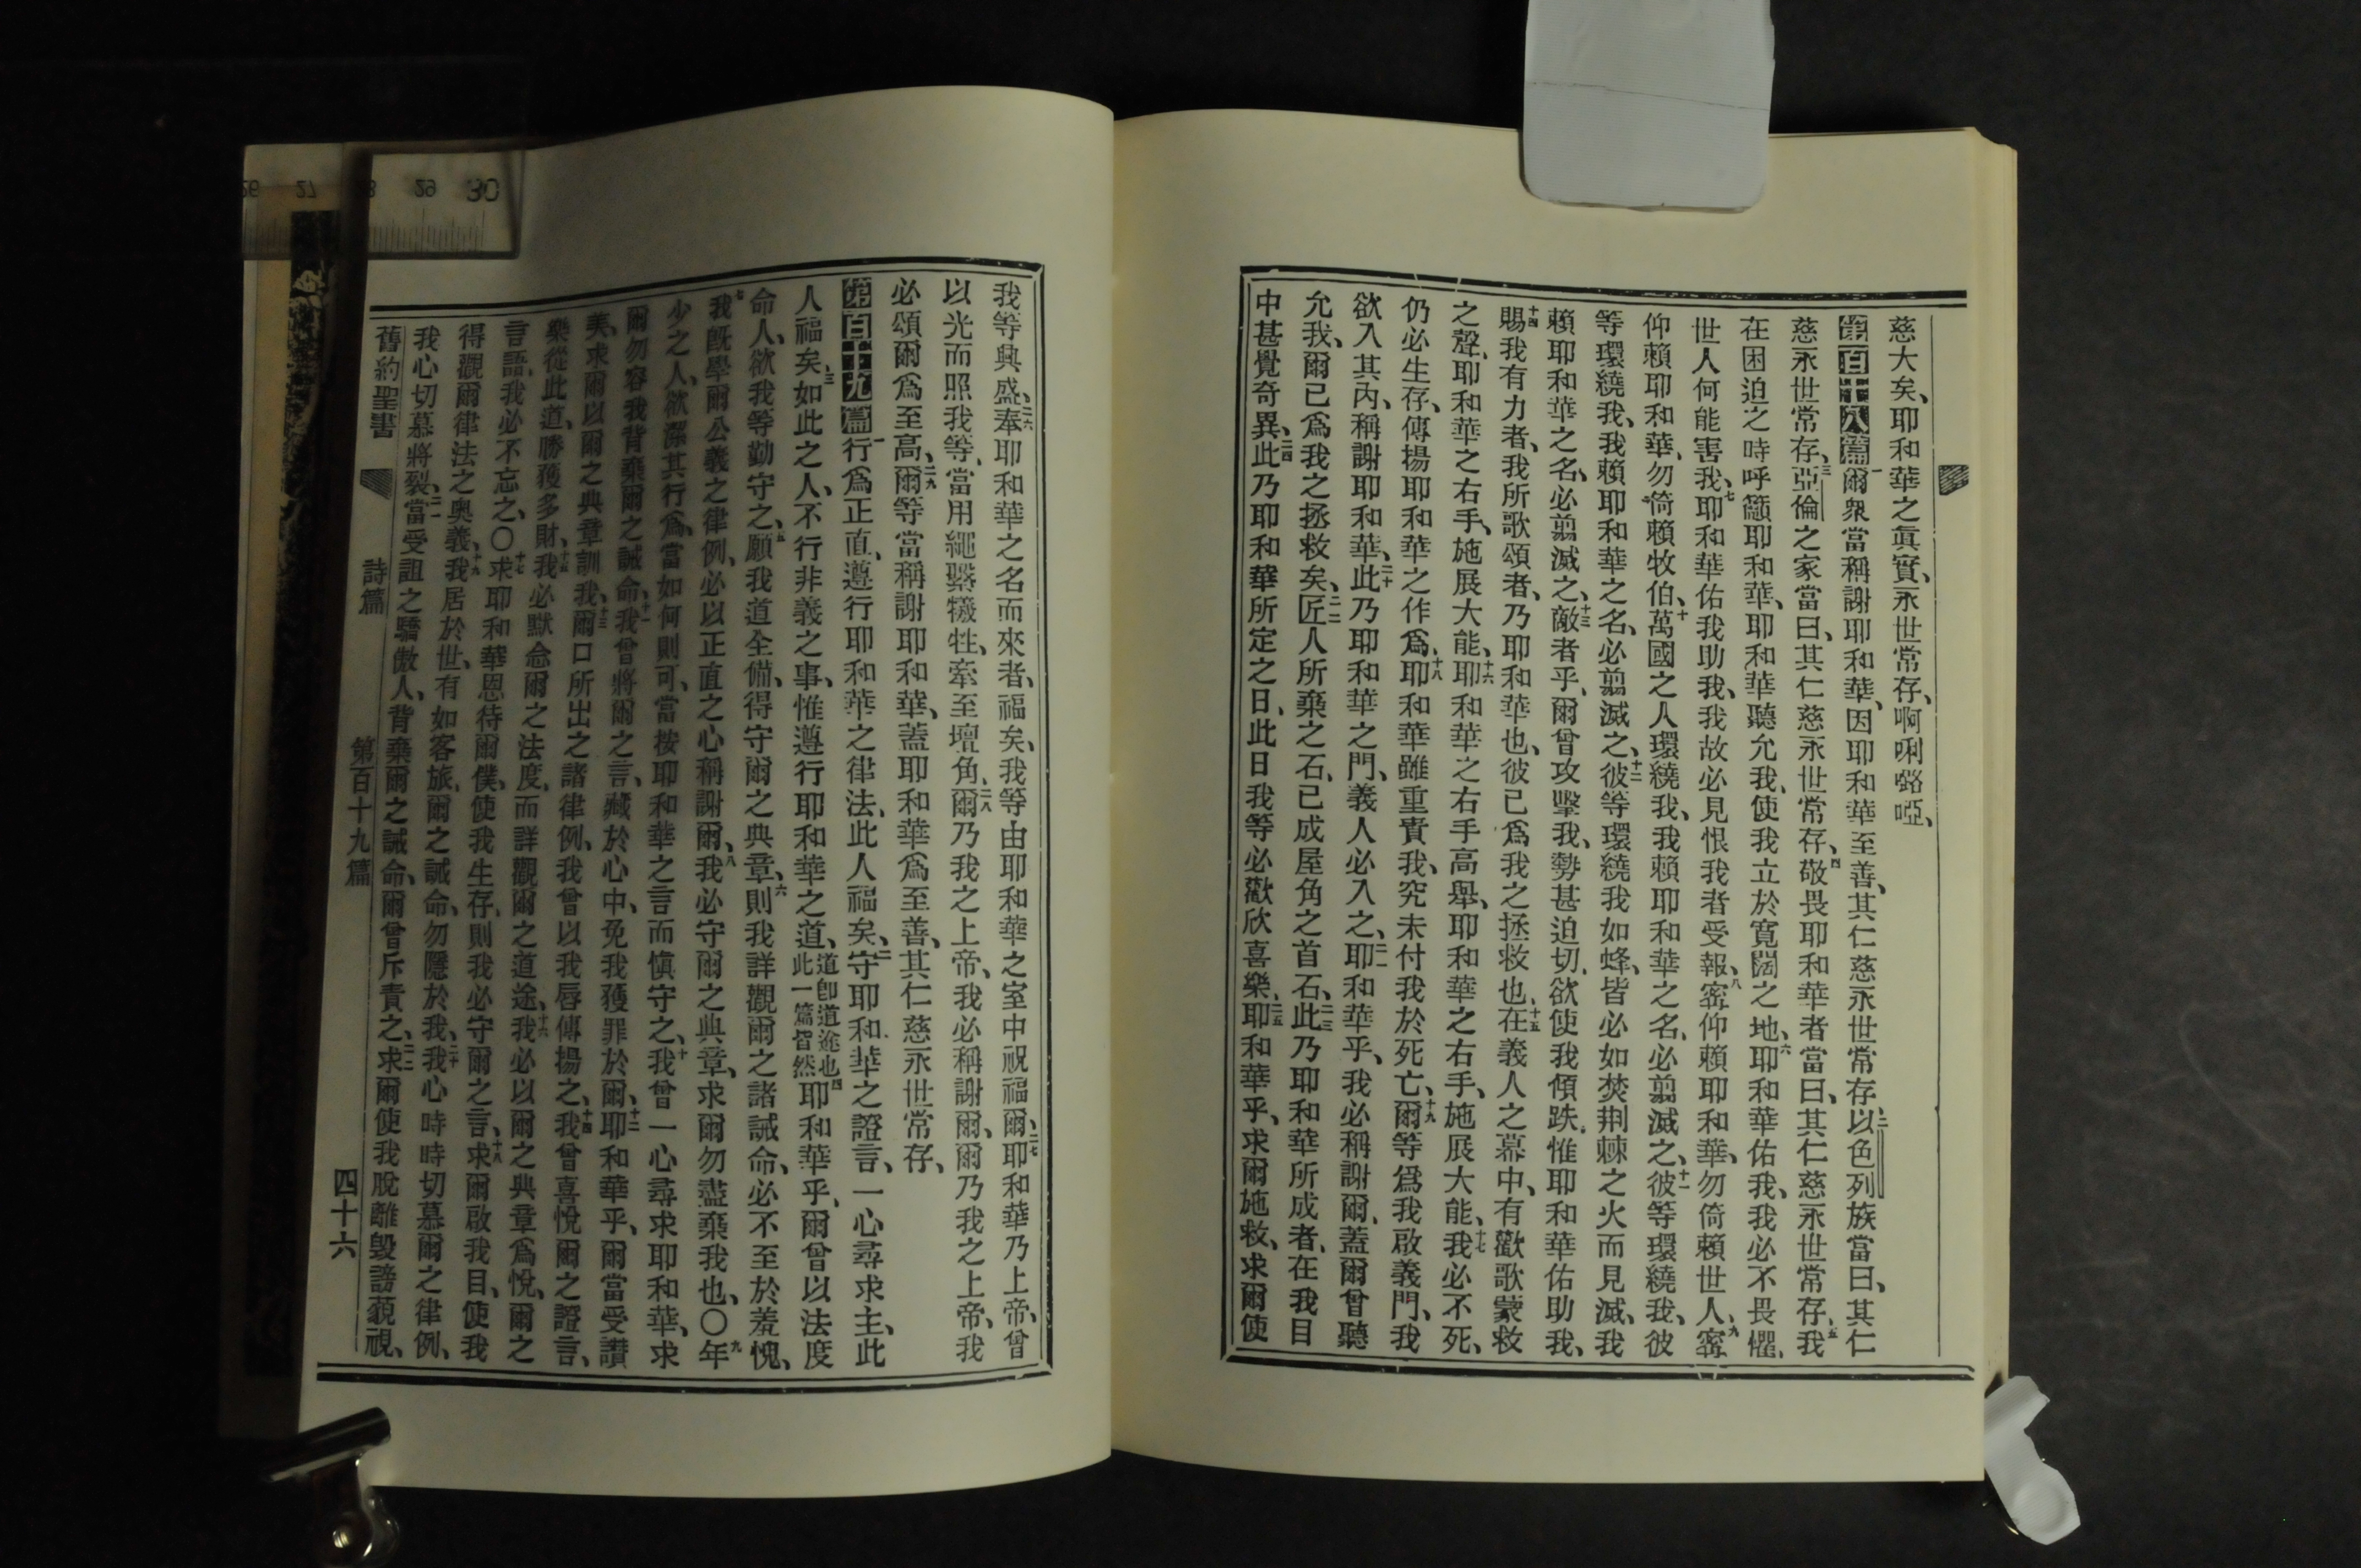 慈大矣、耶和華之眞實、永世常存、啊唎嚕啞、
第百十八篇一爾衆當稱謝耶和華、因耶和華至善、其仁慈永世常存、二以色列族當曰、其仁
慈永世常存、三亞倫之家當曰、其仁慈永世常存、四敬畏耶和華者當曰、其仁慈永世常存、五我
在困迫之時呼籲耶和華、耶和華聽允我、使我立於寬闊之地、六耶和華佑我、我必不畏懼、
世人何能害我、七耶和華佑我助我、我故必見恨我者受報、八寗仰賴耶和華、勿倚賴世人、九寗
仰賴耶和華、勿倚賴牧伯、十萬國之人環繞我、我賴耶和華之名、必翦滅之、十一彼等環繞我、彼
等環繞我、我賴耶和華之名、必翦滅之、十二彼等環繞我如蜂、皆必如焚荆棘之火而見滅、我
賴耶和華之名、必翦滅之、十三敵者乎、爾曾攻擊我、勢甚迫切、欲使我傾跌、惟耶和華佑助我、
十四賜我有力者、我所歌頌者、乃耶和華也、彼已爲我之拯救也、十五在義人之幕中、有歡歌蒙救
之聲、耶和華之右手、施展大能、十六耶和華之右手高舉、耶和華之右手、施展大能、十七我必不死、
仍必生存、傳揚耶和華之作爲、十八耶和華雖重責我、究未付我於死亡、十九爾等爲我啟義門、我
欲入其內、稱謝耶和華、二十此乃耶和華之門、義人必入之、二一耶和華乎、我必稱謝爾、蓋爾曾聽
允我、爾已爲我之拯救矣、二二匠人所棄之石、已成屋角之首石、二三此乃耶和華所成者、在我目
中甚覺奇異、二四此乃耶和華所定之日、此日我等必歡欣喜樂、二五耶和華乎、求爾施救、求爾使
我等興盛、二六奉耶和華之名而來者、福矣、我等由耶和華之室中祝福爾、二七耶和華乃上帝、曾
以光而照我等、當用繩繫犧牲、牽至壇角、二八爾乃我之上帝、我必稱謝爾、爾乃我之上帝、我
必頌爾爲至高、二九爾等當稱謝耶和華、蓋耶和華爲至善、其仁慈永世常存、
第百十九篇一行爲正直、遵行耶和華之律法、此人福矣、二守耶和華之證言、一心尋求主、此
人福矣、三如此之人、不行非義之事、惟遵行耶和華之道、道卽道途也此一篇皆然四耶和華乎、爾曾以法度
命人、欲我等勤守之、五願我道全備、得守爾之典章、六則我詳觀爾之諸誡命、必不至於羞愧、
七我旣學爾公義之律例、必以正直之心稱謝爾、八我必守爾之典章、求爾勿盡棄我也、〇九年
少之人、欲潔其行爲、當如何則可、當按耶和華之言而愼守之、十我曾一心尋求耶和華、求
爾勿容我背棄爾之誡命、十一我曾將爾之言、藏於心中、免我獲罪於爾、十二耶和華乎、爾當受讚
美、求爾以爾之典章訓我、十三爾口所出之諸律例、我曾以我唇傳揚之、十四我曾喜悅爾之證言、
樂從此道、勝獲多財、十五我必默念爾之法度、而詳觀爾之道途、十六我必以爾之典章爲悅、爾之
言語、我必不忘之、〇十七求耶和華恩待爾僕、使我生存、則我必守爾之言、十八求爾啟我目、使我
得觀爾律法之奧義、十九我居於世、有如客旅、爾之誡命、勿隱於我、二十我心時時切慕爾之律例、
我心切慕將裂、二一當受詛之驕傲人、背棄爾之誡命、爾曾斥責之、二二求爾使我脫離毀謗藐視、
舊約聖書　詩篇　第百十九篇　四十六